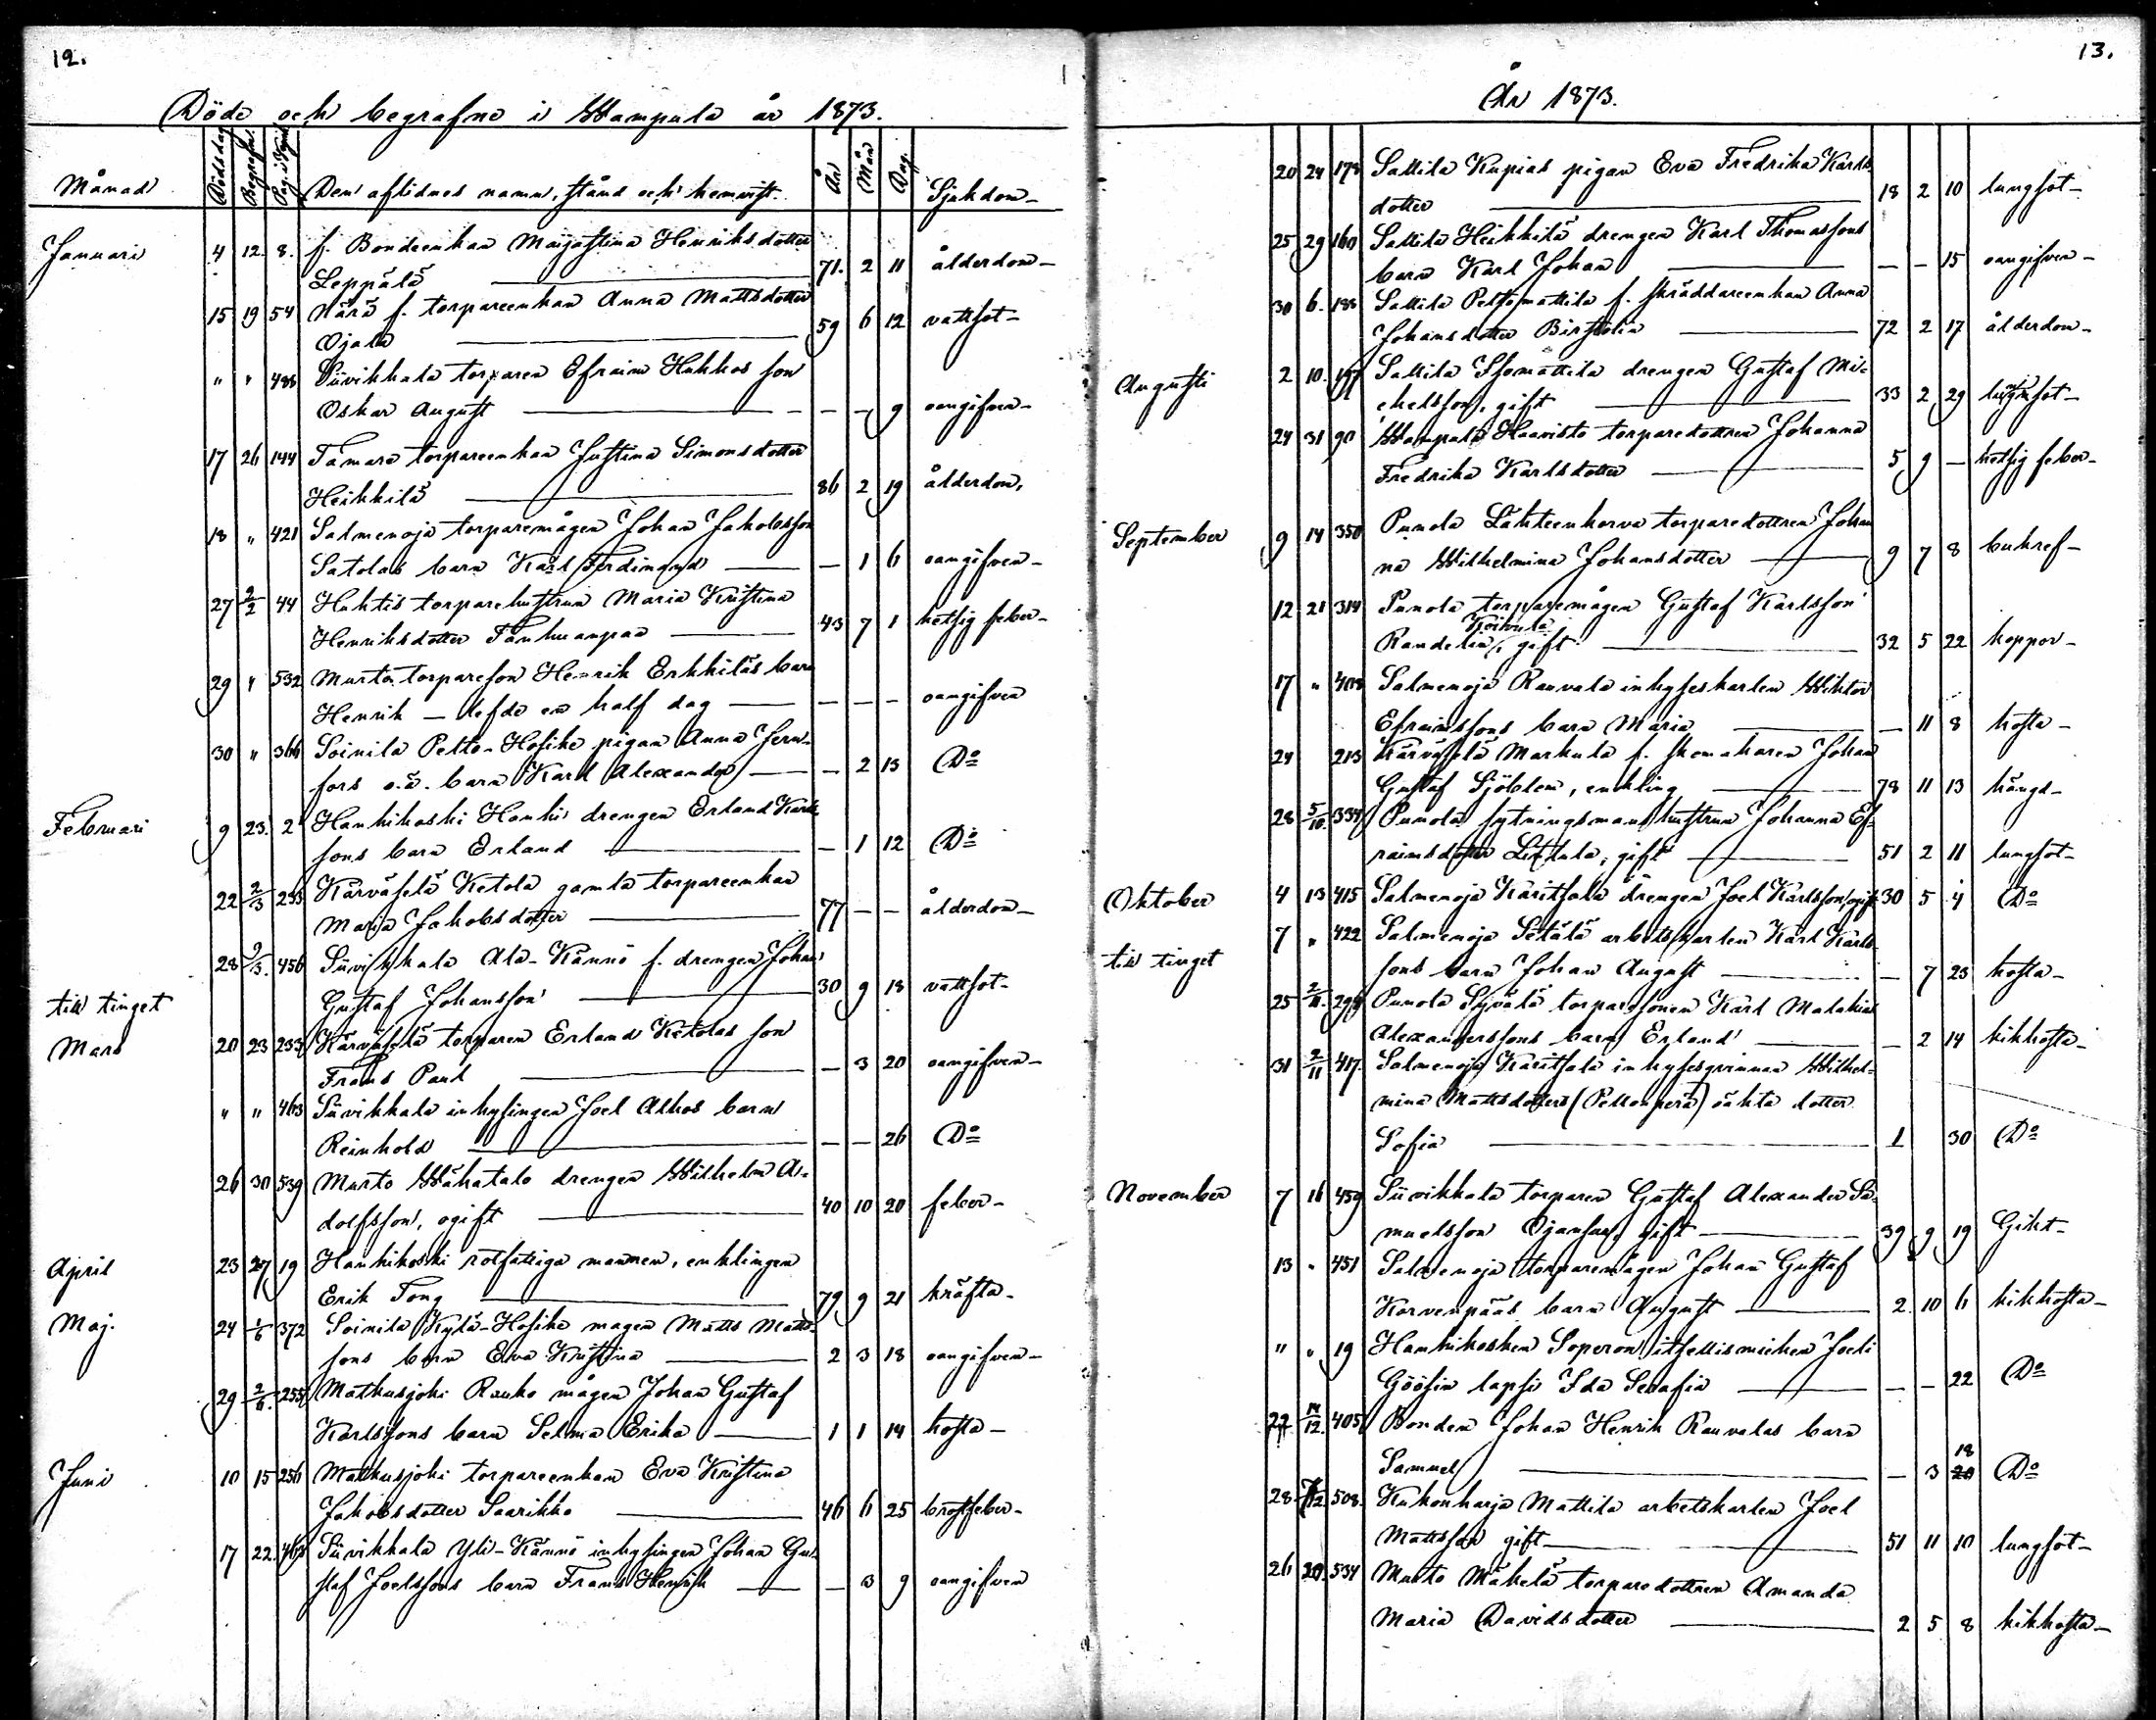 12.
Döde och begrafne i Wampula år 1873.
Månad Dödsdag Begrafn. Pag. i Den aflidnes namn, stånd och hemvist. År Mån Dag. Sjukdom
Januari 4 12. 8. f. Bondeenkan Majastina Henriksdotter
Leppälä 71. 2 11 ålderdom
15 19 54 Närä f. torpareenkan Anna Mattsdotter
Ojala 59 6 12 vattsot
" " 488 Siivikkala torparen Efraim Hukkos son
Oskar August - - 9 oangifven
17 26 144 Tamare torpareenkan Justina Simonsdotter
Heikkilä 86 2 19 ålderdom,
18 " 421 Salmenoja torparemågen Johan Jakobsson
Satolas barn Karl Ferdinand - 1 6 oangifven
27 2/2 44 Huhtis torparehustrun Maria Kristina
Henriksdotter Tanhuanpää 43 7 1 hetsig feber
29 " 532 Murto torpareson Henrik Erkkiläs barn
Henrik - lefde en half dag - - - oangifven
30 " 366 Soinila Pelto-Hosike pigan Anna Jern-
fors o.ä. barn Karl Alexander - 2 13 Do
Februari 9 23. 2 Hankikoski Hanki drengen Erland Karls
sons barn Erland - 1 12 Do
22 2/3 233 Kärväselä Ketola gamla torpareenkan
Maria Jakobsdotter 77 - - ålderdom
28 2/3. 456 Siivikkala Ala-Kännö f. drengen Johan
Gustaf Johansson 30 9 18 vattsot
till tinget
Mars 20 23 233 Kärväselä torparen Erland Ketolas son
Frans Paul - 3 20 oangifven
" " 463 Siivikkala inhysingen Joel Alhos barn
Reinhold - - 26 Do
26 30 539 Murto Wähätalo drengen Wilhelm A-
dolfsson, ogift 40 10 20 feber
April 23 27 19 Hankikoski rotfattiga mannen, enklingen
Erik Tong 79 9 21 kräfta
Maj. 24 1/6 372 Soinila Kylä-Hosike mågen Matts Matts-
sons barn Eva Kristina 2 3 18 oangifven
29 2/6. 255 Matkusjoki Rauko mågen Johan Gustaf
Karlssons barn Selma Erika 1 1 14 hosta
Juni 10 15 256 Matkusjoki torpareenkan Eva Kristina
Jakobsdotter Saarikko 46 6 25 bröstfeber
17 22. Siivikkala Yli-Kännö inhysingen Johan Gu-
staf Joelssons barn Frans Henrik - 3 9 oangifven
13.
År 1873.
20 24 178 Sallila Kupias pigan Eva Fredrika Karls
dotter 18 2 10 lungsot
25 29 160 Sallila Heikkilä drengen Karl Thomassons
barn Karl Johan - - 15 oangifven
30 6. 188 Sallila Peltomattila f. skräddareenkan Anna
Johansdotter 72 2 17 ålderdom
Augusti 2 10. 197 Sallila Isomattila drengen Gustaf Mi-
chelsson, gift 33 2 29
24 31 90 Wampula Haavisto torparedottren Johanna
Fredrika Karlsdotter 5 9 - hetsig feber
September 9 14 350 Punola Lähteenkorva torparedottren Johan
na Wilhelmina Johansdotter 9 7 8 bukref
12 21 314 Punola torparemågen Gustaf Karlsson
Koivula
Randelin, gift 32 5 22 koppor
17 " 408 Salmenoja Rauvala inhyseskarlen Wiktor
Efraimssons barn Maria - 11 8 hosta
24 213 Kärväselä Markula f. skomakaren Johan
Gustaf Sjöblom, enkling 78 11 13 hängd
28 5/10. 334 Punola sytningsmans hustrun Johanna Ef-
raimsdotter , gift 51 2 11 lungsot
Oktober 4 13 415 Salmenoja Karitsala drengen Joel Karlsson, ogift 30 5 4 Do
7 " 422 Salmenoja Setälä arbetskarlen Karl Karls-
till tinget sons barn Johan August - 7 23 hosta
25 2/11. 299 Punola Syvälä torparesonen Karl Malakias
Alexanderssons barn Erland - 2 14 kikhosta
31 2/11 417. Salmenoja Karitsala inhysesqvinnan Wilhel-
mina Mattsdotters (Peltonperä) oäkta dotter
Sofia 1 30 Do
November 7 16 459 Siivikkala torparen Gustaf Alexander Sa-
muelsson Ojansuu, gift 39 9 19 Gikt
13 " 451 Salmenoja torparemågen Johan Gustaf
Korvenpääs barn August 2 10 6 kikhosta
" " 19 Hankikosken Soperon itsellismiehen Joeli
Göösin lapsi Ida Serafia - - 22 Do
22 14/12. 405 Bonden Johan Henrik Rauvalas barn
Samuel - 3 18 20 Do
28 7/12. 508. Kukonharja Mattila arbetskarlen Joel
Mattsson gift 51 11 10 lungsot
26 20. 534 Murto Mäkelä torparedottren Amanda
Maria Davidsdotter 2 5 8 kikhosta